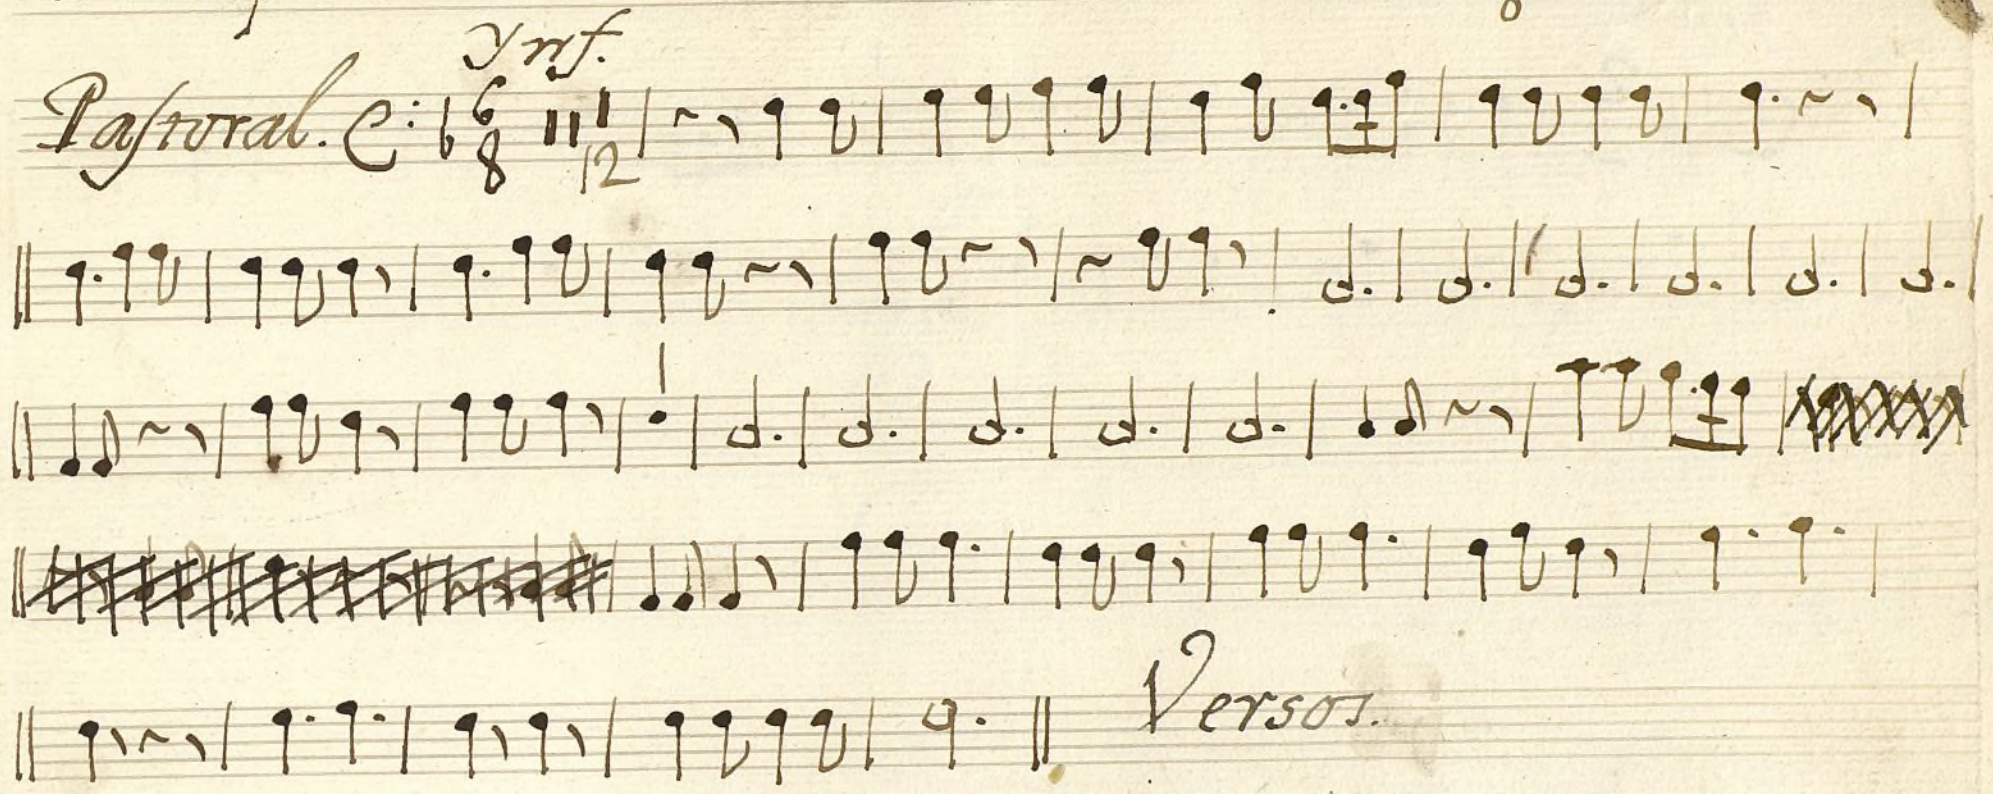 Ynf.
Pastoral. 6 8 12
Versos.